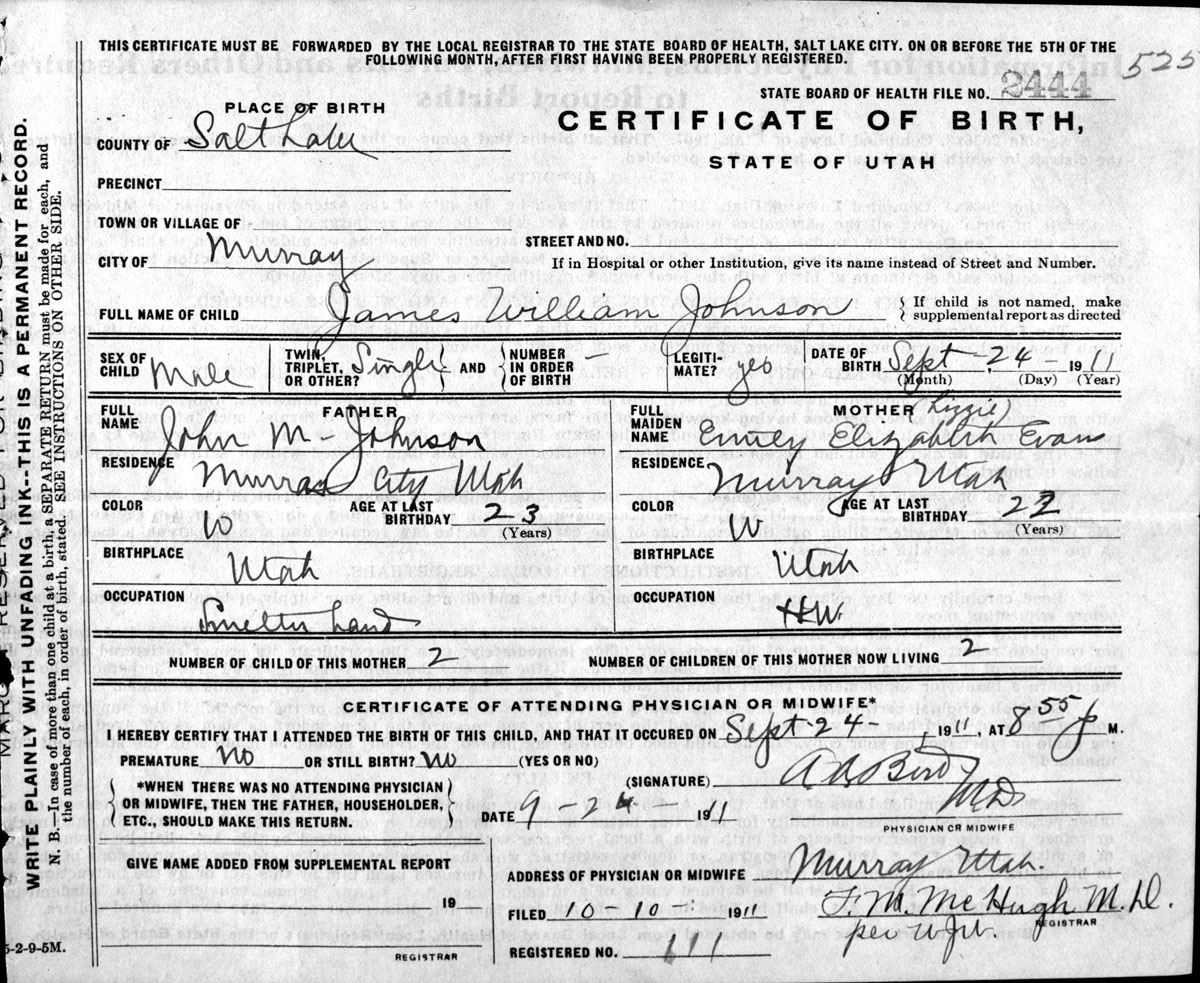 THIS CERTIFICATE MUST BE FORWARDED BY THE LOCAL REGISTRAR TO THE STATE BOARD OF HEALTH, SALT LAKE CITY. ON OR BEFORE THE 5TH OF THE
FOLLOWING MONTH, AFTER FIRST HAVING BEEN PROPERLY REGISTERED.
525
STATE BOARD OF HEALTH FILE NO. 2444
PLACE OF BIRTH
CERTIFICATE OF BIRTH,
COUNTY OF Salt Lake
STATE OF UTAH
PRECINCT
TOWN OR VILLAGE OF
STREET AND NO.
CITY OF Murray
If in Hospital or other Institution, give its name instead of Street and Number.
FULL NAME OF CHILD James William Johnson
If child is not named, make
supplemental report as directed
SEX OF CHILD Male
TWIN, TRIPLET, OR OTHER? Single AND NUMBER IN ORDER OF BIRTH –
LEGITI-MATE? yes
DATE OF BIRTH Sept. 24 – 1911
(Month) (Day) (Year)
FULL NAME FATHER
John M Johnson
RESIDENCE
Murray City Utah
COLOR W AGE AT LAST BIRTHDAY 23
(Years)
BIRTHPLACE
Utah
OCCUPATION
Smelter
FULL MAIDEN NAME MOTHER (Lizzie)
Emily Elizabeth Evans
RESIDENCE
Murray Utah
COLOR W AGE AT LAST BIRTHDAY 22
(Years)
BIRTHPLACE
Utah
OCCUPATION
HW
NUMBER OF CHILD OF THIS MOTHER 2
NUMBER OF CHILDREN OF THIS MOTHER NOW LIVING 2
CERTIFICATE OF ATTENDING PHYSICIAN OR MIDWIFE*
I HEREBY CERTIFY THAT I ATTENDED THE BIRTH OF THIS CHILD, AND THAT IT OCCURED ON Sept 24 – 1911, AT 8 55 P M.
PREMATURE No OR STILL BIRTH? No (YES OR NO)
*WHEN THERE WAS NO ATTENDING PHYSICIAN
OR MIDWIFE, THEN THE FATHER, HOUSEHOLDER,
ETC., SHOULD MAKE THIS RETURN.
(SIGNATURE) MD
DATE 9 – 24 1911
PHYSICIAN OR MIDWIFE
GIVE NAME ADDED FROM SUPPLEMENTAL REPORT
19
REGISTRAR
ADDRESS OF PHYSICIAN OR MIDWIFE Murray Utah.
FILED 10 – 10 – 1911 McHugh M.D.
REGISTRAR
per
REGISTERED NO. 111
5-2-9-5M.
WRITE PLAINLY WITH UNFADING INK--THIS IS A PERMANENT RECORD.
N. B. In case of more than one child at a birth, a SEPARATE RETURN must be made for each, and
the number of each, in order of birth, stated. SEE INSTRUCTIONS ON OTHER SIDE.